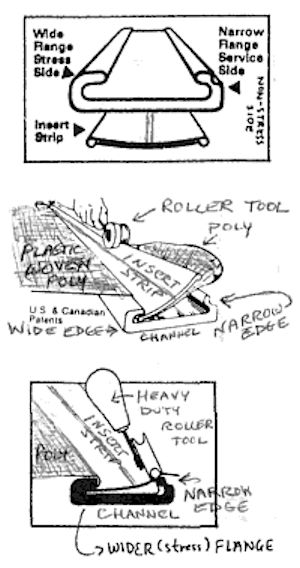 Wide
Range
Stress
Side
Narrow
Range
Service
Side
NON-STRESS
SIDE
Insert
Strip
ROLLER TOOL
POLY
PLASTIC
WOVEN
POLY
INSERT
STRIP
U.S & Canadian
Patents
WIDE EDGE
CHANNEL
NARROW
EDGE
HEAVY
DUTY
ROLLER
TOOL
INSERT
STRIP
POLY
NARROW
EDGE
CHANNEL
WIDER (stress) FLANGE